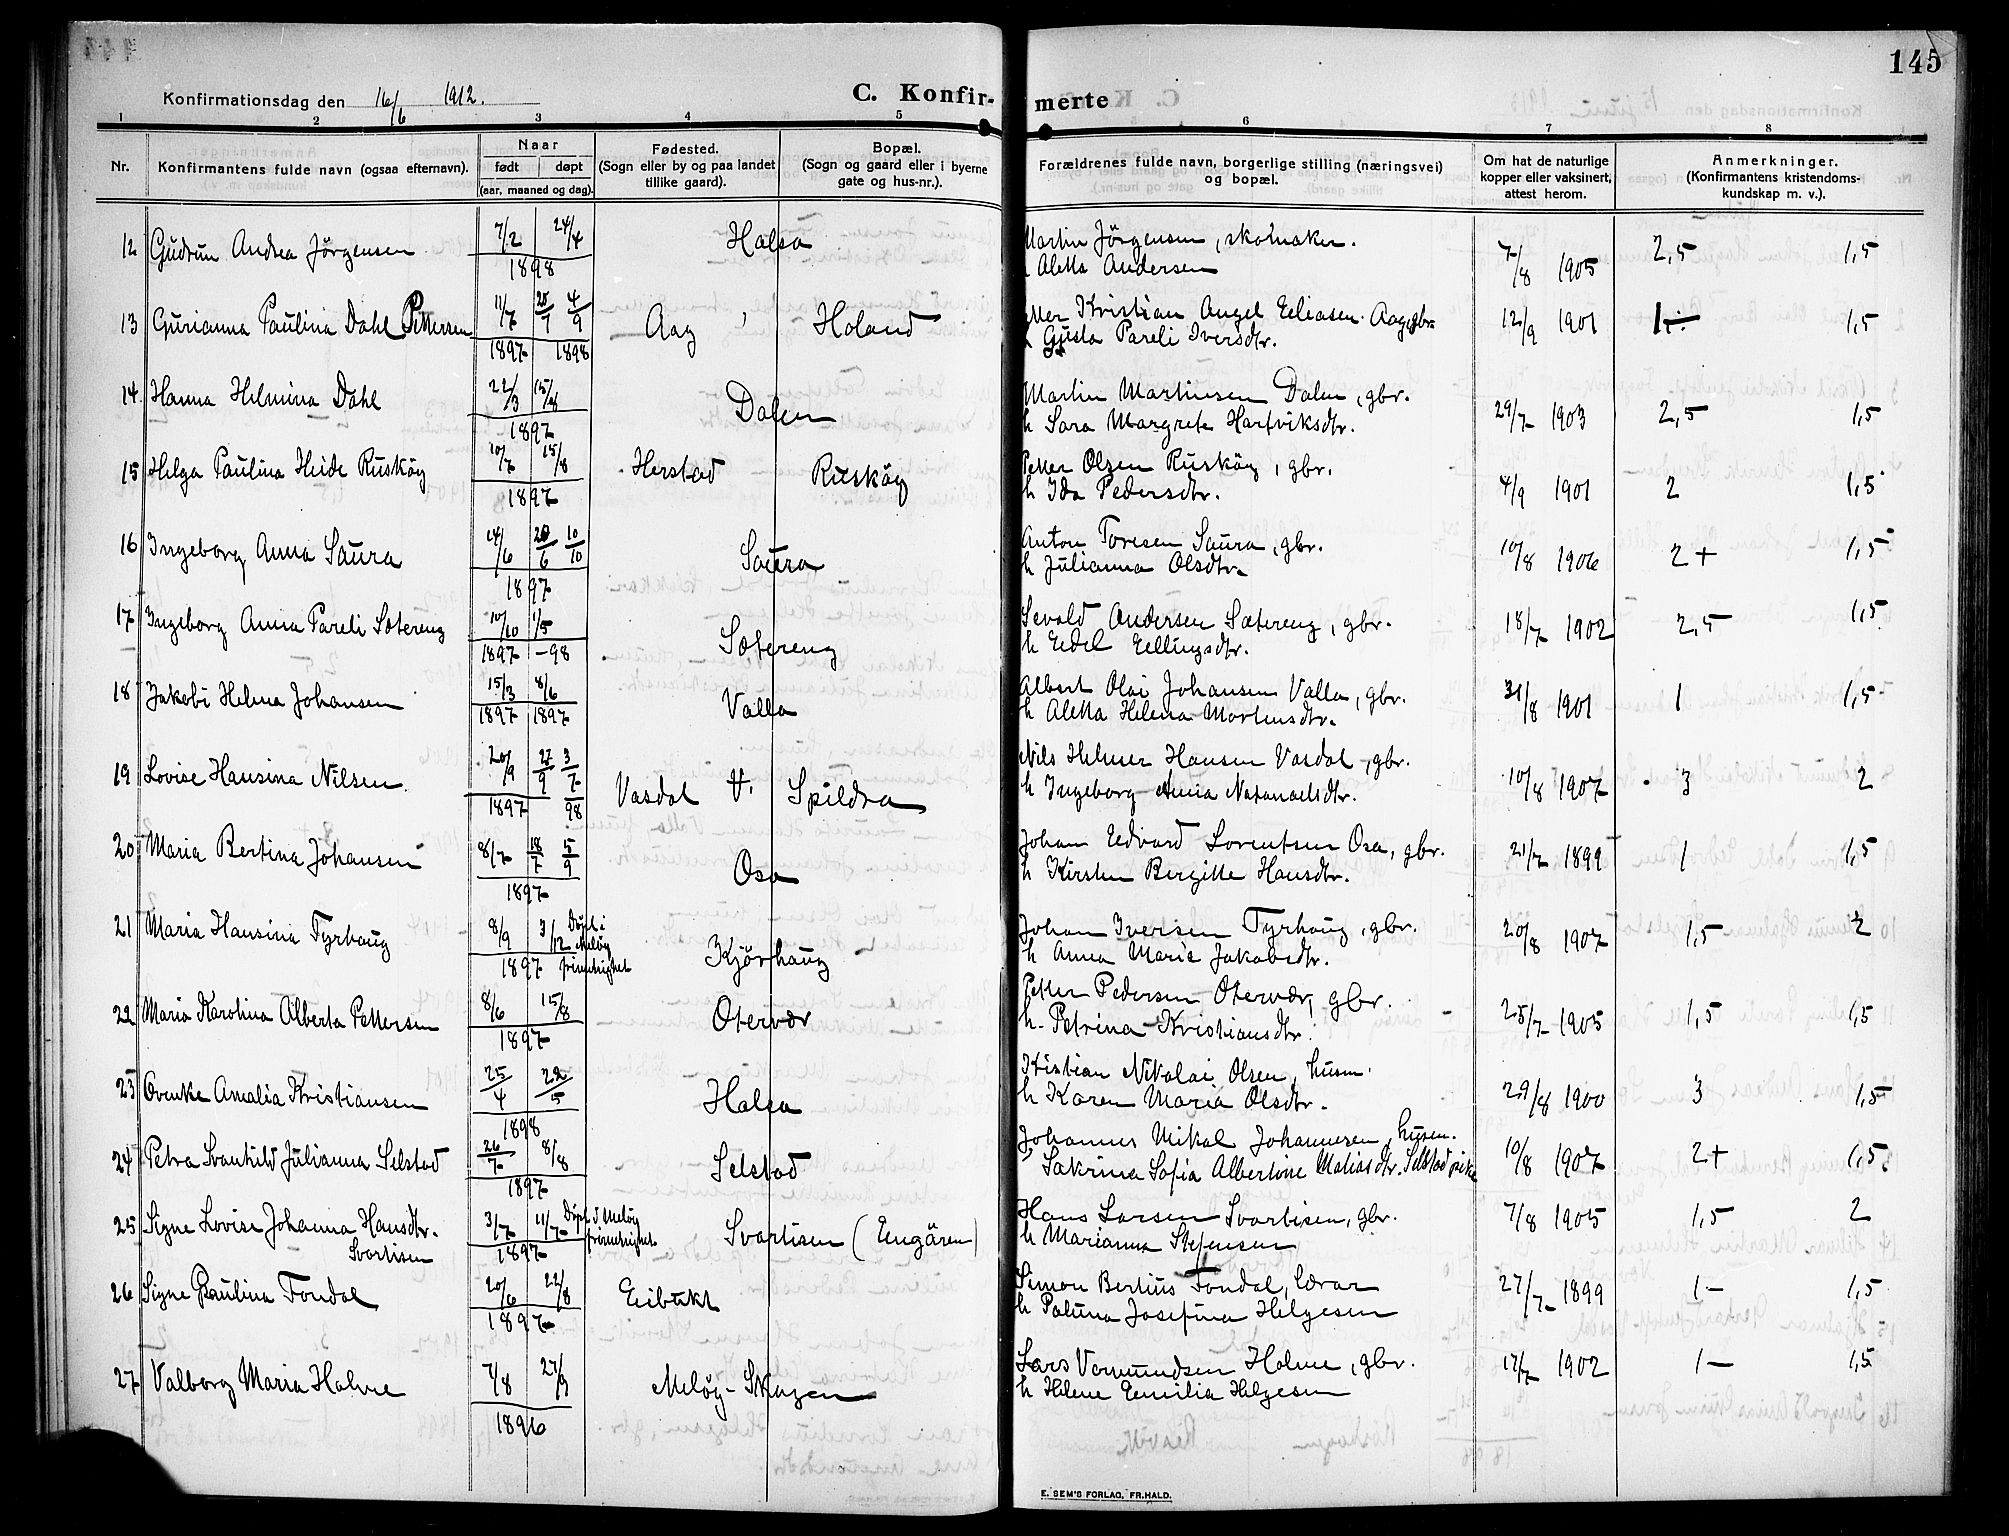 145
Konfirmationsdag den 16/6 1912.
C. Konfir- merte
1 2 3 4 5 6 7 8
Nr.
Konfirmantens fulde navn (ogsaa efternavn).
Naar
født døpt
(aar, maaned og dag).
Fødested.
(Sogn eller by og paa landet
tillike gaard).
Bopæl.
(Sogn og gaard eller i byerne
gate og hus-nr.).
Forældrenes fulde navn, borgerlige stilling (næringsvei)
og bopæl.
Om hat de naturlige
kopper eller vaksinert,
attest herom.
Anmerkninger.
(Konfirmantens kristendoms-
kundskap m. v.).
12 Gudrun Andrea Jörgensen 7/2 24/4 Halsa Martin Jörgensen, skomaker. 7/8 1905 2,5 1,5
1898 Aletta Andersen
13 Gurianna Paulina Dahl Pettersen 11/7 25/7 4/9 Aag Holand Petter Kristian Angel Eliasen Aag, gbr. 12/9 1901 1÷ 1,5
1897 1898 Gusta Pareli Iversdtr.
14 Hanna Helmina Dahl 22/3 15/8 Dalen Martin Martinsen Dalen, gbr. 29/7 1903 2,5 1,5
1897 h Sara Margrete Hartviksdtr.
15 Helga Paulina Heide Ruskög 10/7 15/8 Herstad Ruskög Petter Olsen Ruskög, gbr. 4/9 1901 2 1,5
1897 h Ida Pedersdtr.
16 Ingeborg Anna Saura 14/6 20/6 10/10 Saura Anton Toresen Saura, gbr. 10/8 1906 2+ 1,5
1897 h Julianna Olsdtr.
17 Ingeborg Anna Pareli Sætereng 10/10 1/5 Sætereng Sevald Andersen Sætereng, gbr. 18/7 1902 2,5 1,5
1897 -98 h Edel Ellingsdtr.
18 Jakobi Helena Johansen 15/3 8/6 Valla Albert Olai Johansen Valla, gbr. 31/8 1901 1 1,5
1897 1897 h Aletta Helena Mortensdtr.
19 Lovise Hansina Nilsen 20/9 27/9 3/7 Vasdal Spildra Nils Helmer Hansen Vasdal, gbr. 10/8 1907 3 2
1897 98 h Ingeborg Anna Natanaelsdtr.
20 Maria Bertina Johansen 8/7 18/7 5/9 Osa Johan Edvard Lorentsen Osa, gbr. 21/7 1899 1 1,5
1897 h Kirsten Bergitte Hansdtr.
21 Maria Hansina Tyrhaug 8/9 3/12 Döpt i Melöy Kjörhaug Johan Iversen Tyrhaug, gbr. 20/8 1907 1,5 2
1897 h Anna Marie Jakobsdtr.
22 Maria Karolina Alberta Pettersen 8/6 15/8 Otervær Petter Pedersen Otervær, gbr. 25/7 1905 1,5 1,5
1897 h. Petrina Kristiansdtr.
23 Ovenke Amalia Kristiansen 25/4 22/5 Halsa Kristian Nikolai Olsen, husm. 29/8 1900 3 1,5
1898 h Karen Maria Olsdtr.
24 Petra Svanhild Julianna Selstad 26/7 8/8 Selstad Johannes Mikal Johannesen, husm. 10/8 1907 2+ 1,5
1897 Sakrina Sofia Albertine Matiasdtr. Selstad pike
25 Signe Lovise Johanna Hansdtr. 3/7 11/7 Döpt i Melöy Svartisen (Engåren) Hans Larsen Svartisen, gbr. 7/8 1905 1,5 2
Svartisen 1897 h Marianna Stefensen
26 Signe Paulina Fondal 20/6 22/8 Eibukt Simon Bertius Fondal, lærar 27/7 1899 1- 1,5
1897 h Paluna Josefina Helgesen
27 Valborg Maria Halme 7/8 27/9 Melöy-Skagen Lars Vermundsen Holme, gbr. 17/7 1902 1- 1,5
1896 h Helene Emilia Helgesen
E. SEM'S FORLAG, FR.HALD.